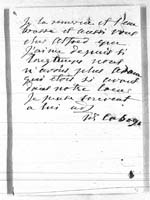 Je la remercie et l'em
brasse et aussi vous
cher Alfred que
j'aime depuis si
longtemps nous
n'avons plus
qui etoit si avant
dans notre coeur
Je pense souvent
a lui